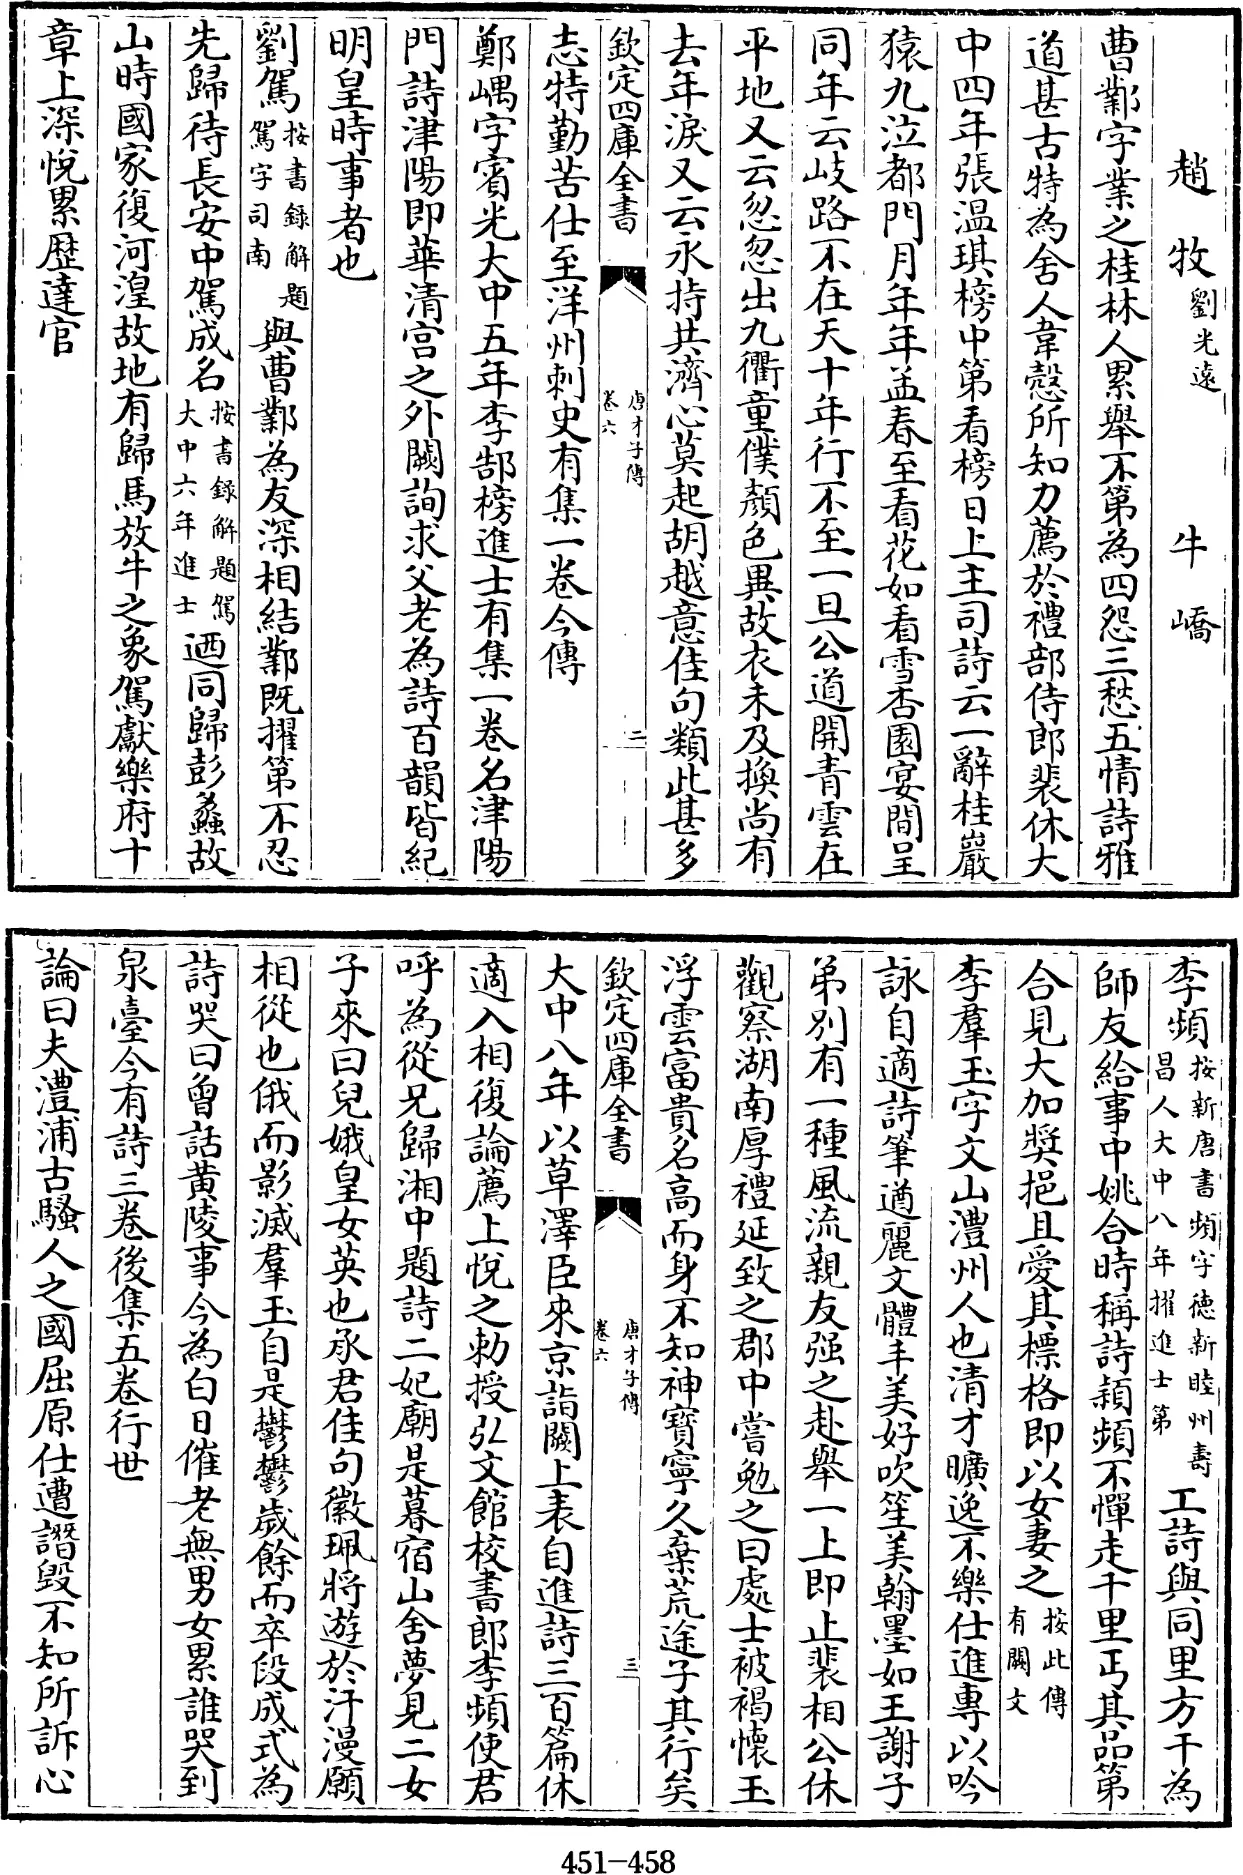 趙牧劉光遠 牛嶠
曹鄴字業之桂林人累舉不第為四怨三愁五情詩雅
道甚古特為舍人韋慤所知力薦於禮部侍郎裴休大
中四年張温琪榜中第看榜日上主司詩云一辭桂巖
猿九泣都門月年年孟春至看花如看雪杏園宴間呈
同年云岐路不在天十年行不至一旦公道開青雲在
平地又云忽忽出九衢童僕顏色異故衣未及換尚有
去年淚又云永持共濟心莫起胡越意佳句類此甚多
欽定四庫全書 唐才子傳 卷六 二
志特勤苦仕至洋州刺史有集一卷今傳
鄭嵎字賓光大中五年李郜榜進士有集一卷名津陽
門詩津陽即華清宫之外闕詢求父老為詩百韻皆紀
明皇時事者也
劉駕按書録解題駕字司南與曹鄴為友深相結鄴既擢第不忍
先歸待長安中駕成名按書録解題駕大中六年進士迺同歸彭蠡故
山時國家復河湟故地有歸馬放牛之象駕獻樂府十
章上深悅累歴達官
李頻按新唐書頻字德新睦州壽昌人大中八年擢進士第工詩與同里方干為
師友給事中姚合時稱詩頴頻不憚走千里丐其品第
合見大加獎挹且愛其標格即以女妻之按此傳有闕文
李羣玉字文山澧州人也清才曠逸不樂仕進專以吟
詠自適詩筆遒麗文體丰美好吹笙美翰墨如王謝子
弟别有一種風流親友强之赴舉一上即止裴相公休
觀察湖南厚禮延致之郡中嘗勉之曰處士被褐懷玉
浮雲富貴名高而身不知神寶寧久棄荒途子其行矣
欽定四庫全書 唐才子傳 卷六 三
大中八年以草澤臣來京詣闕上表自進詩三百篇休
適入相復論薦上悅之勅授弘文館校書郎李頻使君
呼為從兄歸湘中題詩二妃廟是暮宿山舍夢見二女
子來曰兒娥皇女英也承君佳句徽珮將遊於汗漫願
相從也俄而影滅羣玉自是鬱鬱歲餘而卒段成式為
詩哭曰曾話黄陵事今為白日催老無男女累誰哭到
泉臺今有詩三卷後集五卷行世
論曰夫澧浦古騷人之國屈原仕遭譖毁不知所訴心
451-458